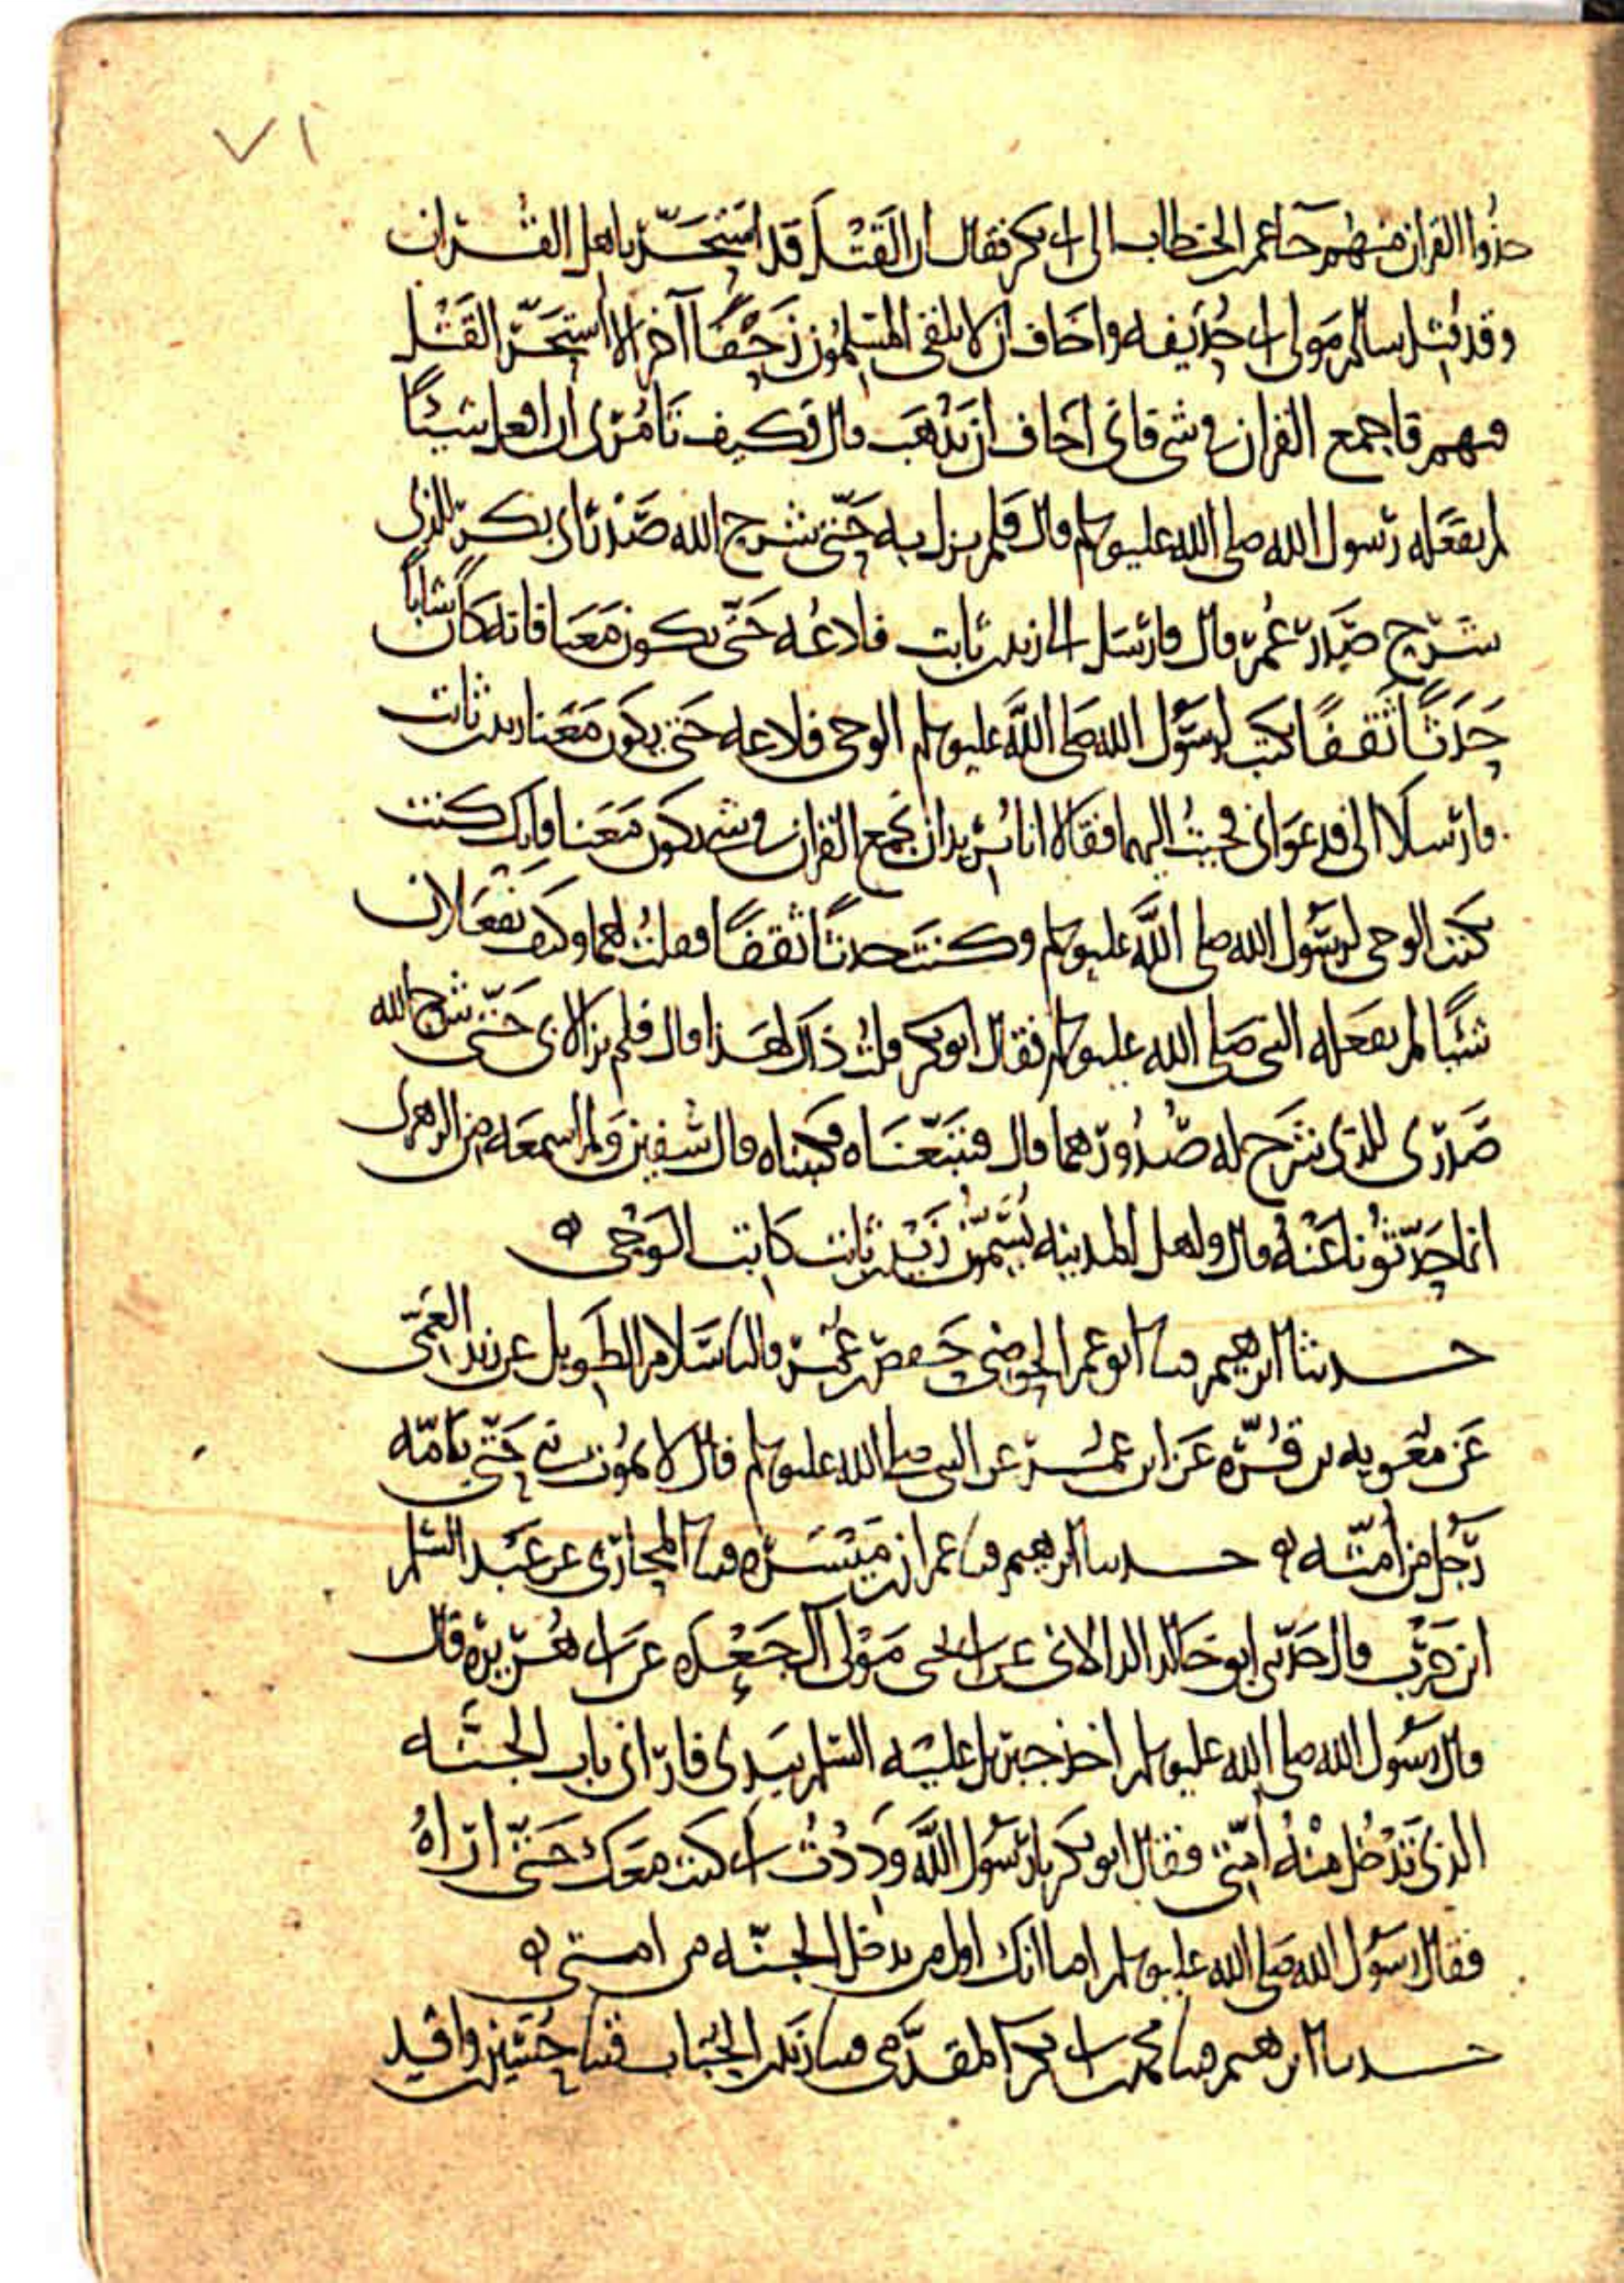 ٧١
خذوا القرآن منهم جاء عمر بن الخطاب الى ابى بكر فقال ان القتل قد استحر باهل القرآن
وقد قتل سالم مولى ابى حذيفه واخاف ان لا يلتقى المسلمون زحفًا آخر الا استحر القتل
فيهم فاجمع القرآن فى شى فانى اخاف ان يذهب قال فكيف تأمرنى ان افعل شيئًا
لم يفعله رسول الله صلى الله عليه وسلم قال فلم يزل به حتى شرح الله صدر ابى بكر للذى
شرح صدر عمر قال فارسل الى زيد بن ثابت فادعه حتى يكون معنا فانه كان شابًا
حدثًا ثقفًا يكتب لرسول الله صلى الله عليه وسلم الوحى فادعه حتى يكون معنا زيد بن ثابت
فارسلا الى فدعوانى فجيت اليهما فقالا انا نريد ان نجمع القرآن فى شى فتكون معنا فانك كنت
تكتب الوحى لرسول الله صلى الله عليه وسلم وكنت حدثًا ثقفًا فقلت لهما وكيف تفعلان
شيئًا لم يفعله النبى صلى الله عليه وسلم فقال ابو بكر قلت ذاك لهذا قال فلم يزالا بى حتى شرح الله
صدرى للذى شرح له صدورهما قال فتتبعناه فكتبناه قال سفين ولم اسمعه من الزهرى
انما حدثونا عنه قال واهل المدينه يسمون زيد بن ثابت كاتب الوحى ه
حدثنا ابرهيم قثنا ابو عمر الحوضى حفص بن عمر قال نا سلام الطويل عن زيد العمى
عن معويه بن قره عن ابن عمر عن النبى صلى الله عليه وسلم قال لا يموت نبى حتى يامه
رجل من امته ه حدثنا ابرهيم قثنا عمران بن ميسره قثنا المحاربى عن عبد السلم
ابن حرب قال حدثنى ابو خالد الدالانى عن ابى يحيى مولى آل جعده عن ابى هريره قال
قال رسول الله صلى الله عليه وسلم اخذ جبريل عليه السلم بيدى فارانى باب الجنه
الذى تدخل منه امتى فقال ابو بكر يا رسول الله وددت انى كنت معك حتى اراه
فقال رسول الله صلى الله عليه وسلم اما انك اول من يدخل الجنه من امتى ه
حدثنا ابرهيم قثنا محمد بن ابى بكر المقدمى قثنا زيد بن الحباب قثنا حسين بن واقد